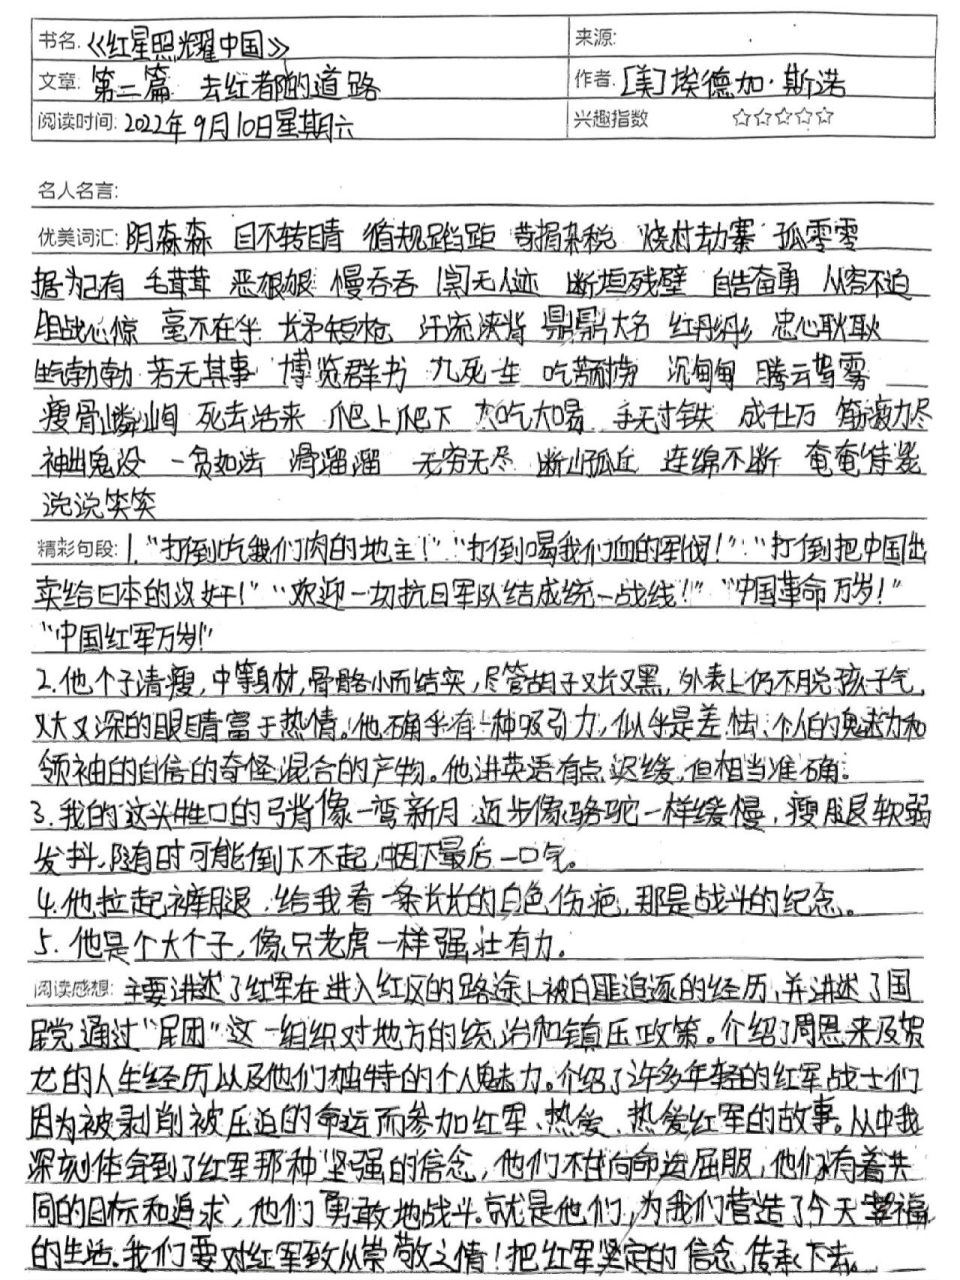 书名:《红星照耀中国》 来源:
文章: 第二篇 去红都的道路 作者: [美]埃德加·斯诺
阅读时间: 2022年9月10日星期六 兴趣指数 ☆☆☆☆☆
名人名言:
优美词汇: 阴森森 目不转睛 循规蹈距 苛捐杂税 烧村劫寨 孤零零
据为己有 毛茸茸 恶狠狠 慢吞吞 阒无人迹 断垣残壁 自告奋勇 从容不迫
胆战心惊 毫不在乎 长矛短枪 汗流浃背 鼎鼎大名 红彤彤 忠心耿耿
生气勃勃 若无其事 博览群书 九死一生 吃苦耐劳 沉甸甸 腾云驾雾
瘦骨嶙峋 死去活来 爬上爬下 大吃大喝 手无寸铁 成千上万 筋疲力尽
神出鬼没 一贫如洗 滑溜溜 无穷无尽 断山孤丘 连绵不断 奄奄待毙
说说笑笑
精彩句段: 1.“打倒吃我们肉的地主!”“打倒喝我们血的军阀!”“打倒把中国出
卖给日本的汉奸!”“欢迎一切抗日军队结成统一战线!”“中国革命万岁!”
“中国红军万岁!”
2.他个子清瘦,中等身材,骨骼小而结实,尽管胡子又长又黑,外表上仍不脱孩子气,
又大又深的眼睛富于热情。他确乎有一种吸引力,似乎是羞怯、个人的魅力和
领袖的自信的奇怪混合的产物。他讲英语有点迟缓,但相当准确。
3.我的这头牲口的弓背像一弯新月,迈步像骆驼一样缓慢,瘦腿软弱
发抖,随时可能倒下不起,咽下最后一口气。
4.他拉起裤腿,给我看一条长长的白色伤疤,那是战斗的纪念。
5.他是个大个子,像只老虎一样强壮有力。
阅读感想: 主要讲述了红军在进入红区的路途上被白匪追逐的经历,并讲述了国
民党通过“民团”这一组织对地方的统治和镇压政策。介绍周恩来及贺
龙的人生经历以及他们独特的个人魅力。介绍了许多年轻的红军战士们
因为被剥削被压迫的命运而参加红军、热爱、热爱红军的故事。从中我
深刻体会到了红军那种坚强的信念,他们不甘向命运屈服,他们有着共
同的目标和追求,他们勇敢地战斗。就是他们,为我们营造了今天幸福
的生活。我们要对红军致以崇敬之情!把红军坚定的信念,传承下去。